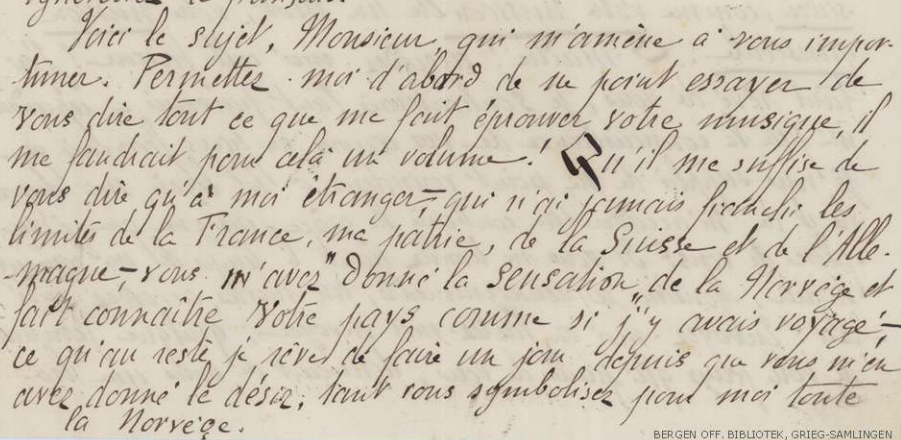 le français.
Voici le sujet, Monsieur, qui m'amène à vous impor-
tuner. Permettez-moi d'abord de ne point essayer de
vous dire tout ce que me fait éprouver votre musique, il
me faudrait pour cela un volume! Qu'il me suffise de
vous dire qu'à moi étranger, qui n'ai jamais franchi les
limites de la France, ma patrie, de la Suisse et de l'Alle-
magne, vous m'avez donné la sensation de la Norvège et
fait connaître votre pays comme si j'y avais voyagé,
ce qu'au reste je rêve de faire un jour depuis que vous m'en
avez donné le désir, tant vous symbolisez pour moi toute
la Norvège.
BERGEN OFF. BIBLIOTEK, GRIEG-SAMLINGEN